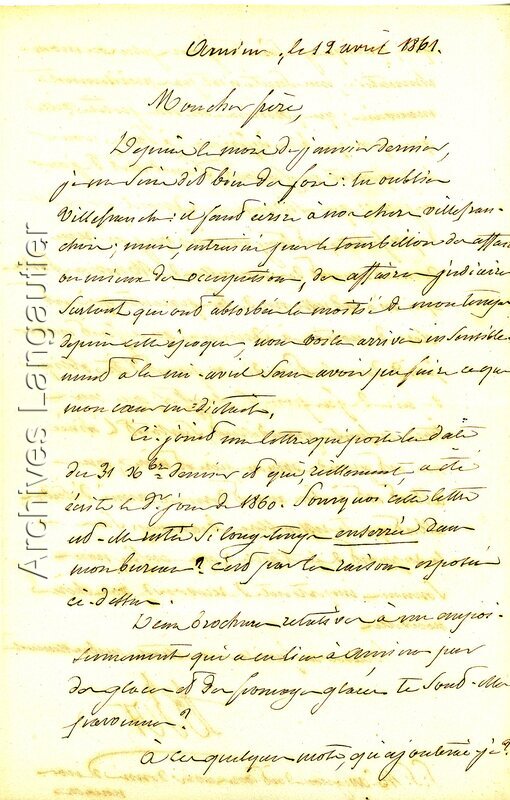 Amiens, le 12 avril 1861.
Mon cher frère,
Depuis le mois de janvier dernier,
je me suis dit bien des fois : tu oublies
Villefranche : il faut écrire à nos chers Villefran-
chois ; mais, entraîné par le tourbillon des affaires
ou mieux des occupations, des affaires judiciaires
surtout qui ont absorbé la moitié de mon temps
depuis cette époque, nous voilà arrivés insensible-
ment à la mi-avril sans avoir pu faire ce que
mon cœur me dictait.
Ci-joint une lettre qui porte la date
du 31 Xbre dernier et qui, réellement, a été
écrite le dr jour de 1860. Pourquoi cette lettre
est-elle restée si long-temps enserrée dans
mon bureau ? c'est par la raison exposée
ci-dessus.
Deux brochures relatives à un empoi-
sonnement qui a eu lieu à Amiens par
des glaces et des fromages glacés te sont-elles
parvenues ?
À ces quelques mots, qu'ajouterai-je ?
Archives Langautier